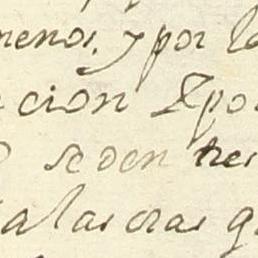 menos. y por la
cion Xpo
se den tres
a las oras q